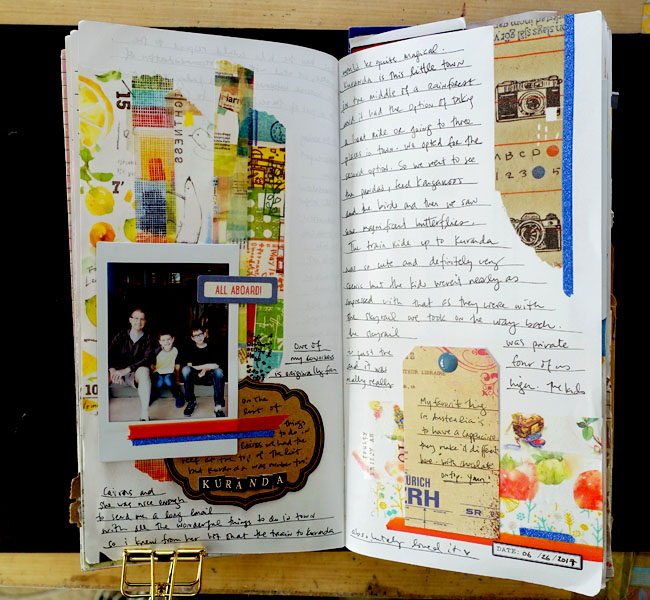 15
7"
LIGHTNESS
ALL ABOARD!
One of
my favorites
is originally from
on the
list of
things
to do in
Cairns we had the
reef at the top of the list
but Kuranda was number two!
KURANDA
Cairns and
she was nice enough
to send me a long email
with all the wonderful things to do in town
so i knew from her that the train to Kuranda
would be quite magical.
Kuranda is this little town
in the middle of a rainforest
and it had the option of taking
a boat ride or going to three
places in town. We opted for the
second option. So we went to see
the pandas, feed Kangaroos
and the birds and then we saw
some magnificent butterflies.
The train ride up to Kuranda
was so cute and definitely very
scenic but the kids weren't nearly as
impressed with that as they were with
the skyrail we took on the way back.
the skyrail was private
just the four of us
and it was high. The kids
really really
absolutely loved it
ABCD
1 2 3 5
My favorite thing
in Australia is
to have a cappuccino
they make it different
here - with chocolate
on top. Yum!
ÜRICH
RH
SR
DATE: 04/26/2017